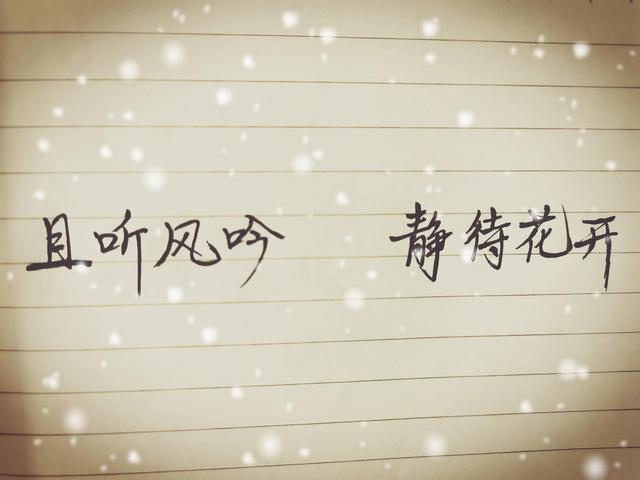 且听风吟 静待花开